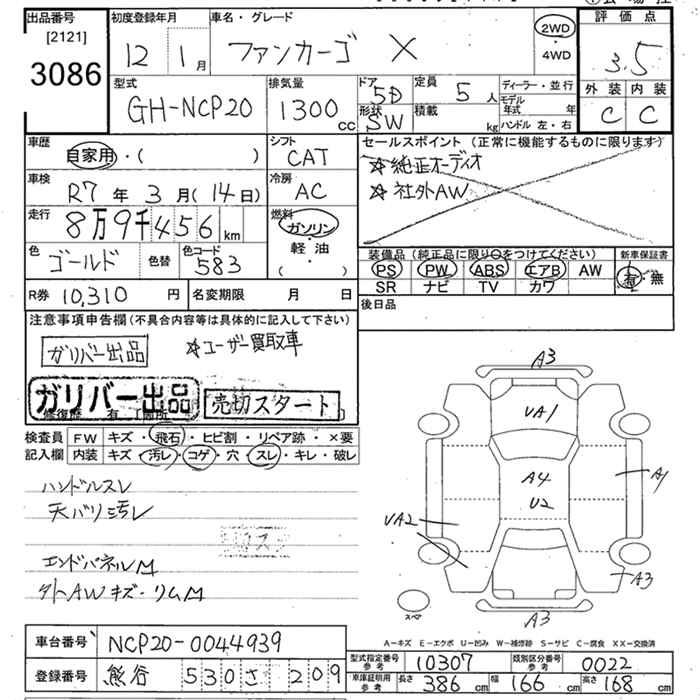 出品番号 初度登録年月 車名・グレード 評価点
[2121]
3086
12 1月 ファンカーゴ X 2WD・4WD 3.5
外装 内装
C C
型式 GH-NCP20 排気量 1300cc ドア形状 5D SW 定員 5人 積載 kg
ディーラー・並行
モデル年式 年
ハンドル 左・右
車歴 自家用・( ) シフト CAT
セールスポイント (正常に機能するものに限ります)
☆純正オーディオ
☆社外AW
車検 R7年3月(14日) 冷房 AC
走行 8万9千456km 燃料 ガソリン・軽油・( )
色 ゴールド 色替 色コード 583
装備品 (純正品に限り○をつけてください) 新車保証書
PS PW ABS エアB AW 有・無
SR ナビ TV カワ
R券 10,310円 名変期限 月 日 後日品
注意事項申告欄(不具合内容等は具体的に記入して下さい)
ガリバー出品 ☆ユーザー買取車
ガリバー出品 売切スタート
修復歴 有 [箇所 ]
検査員記入欄 FW キズ・飛石・ヒビ割・リペア跡・×要
内装 キズ・汚レ・コゲ・穴・スレ・キレ・破レ
ハンドルスレ
天バリ汚レ
エンドパネルM
外AWキズ・リムM
A3
UA1
A4
U2
A1
UA2
A3
A3
スペア
A-キズ E-エクボ U-凹み W-補修跡 S-サビ C-腐食 XX-交換済
車台番号 NCP20-0044939
登録番号 熊谷 530 さ 209
型式指定番号 参考 10307 類別区分番号 参考 0022
車庫証明用 参考 長さ 386cm 幅 166cm 高さ 168cm